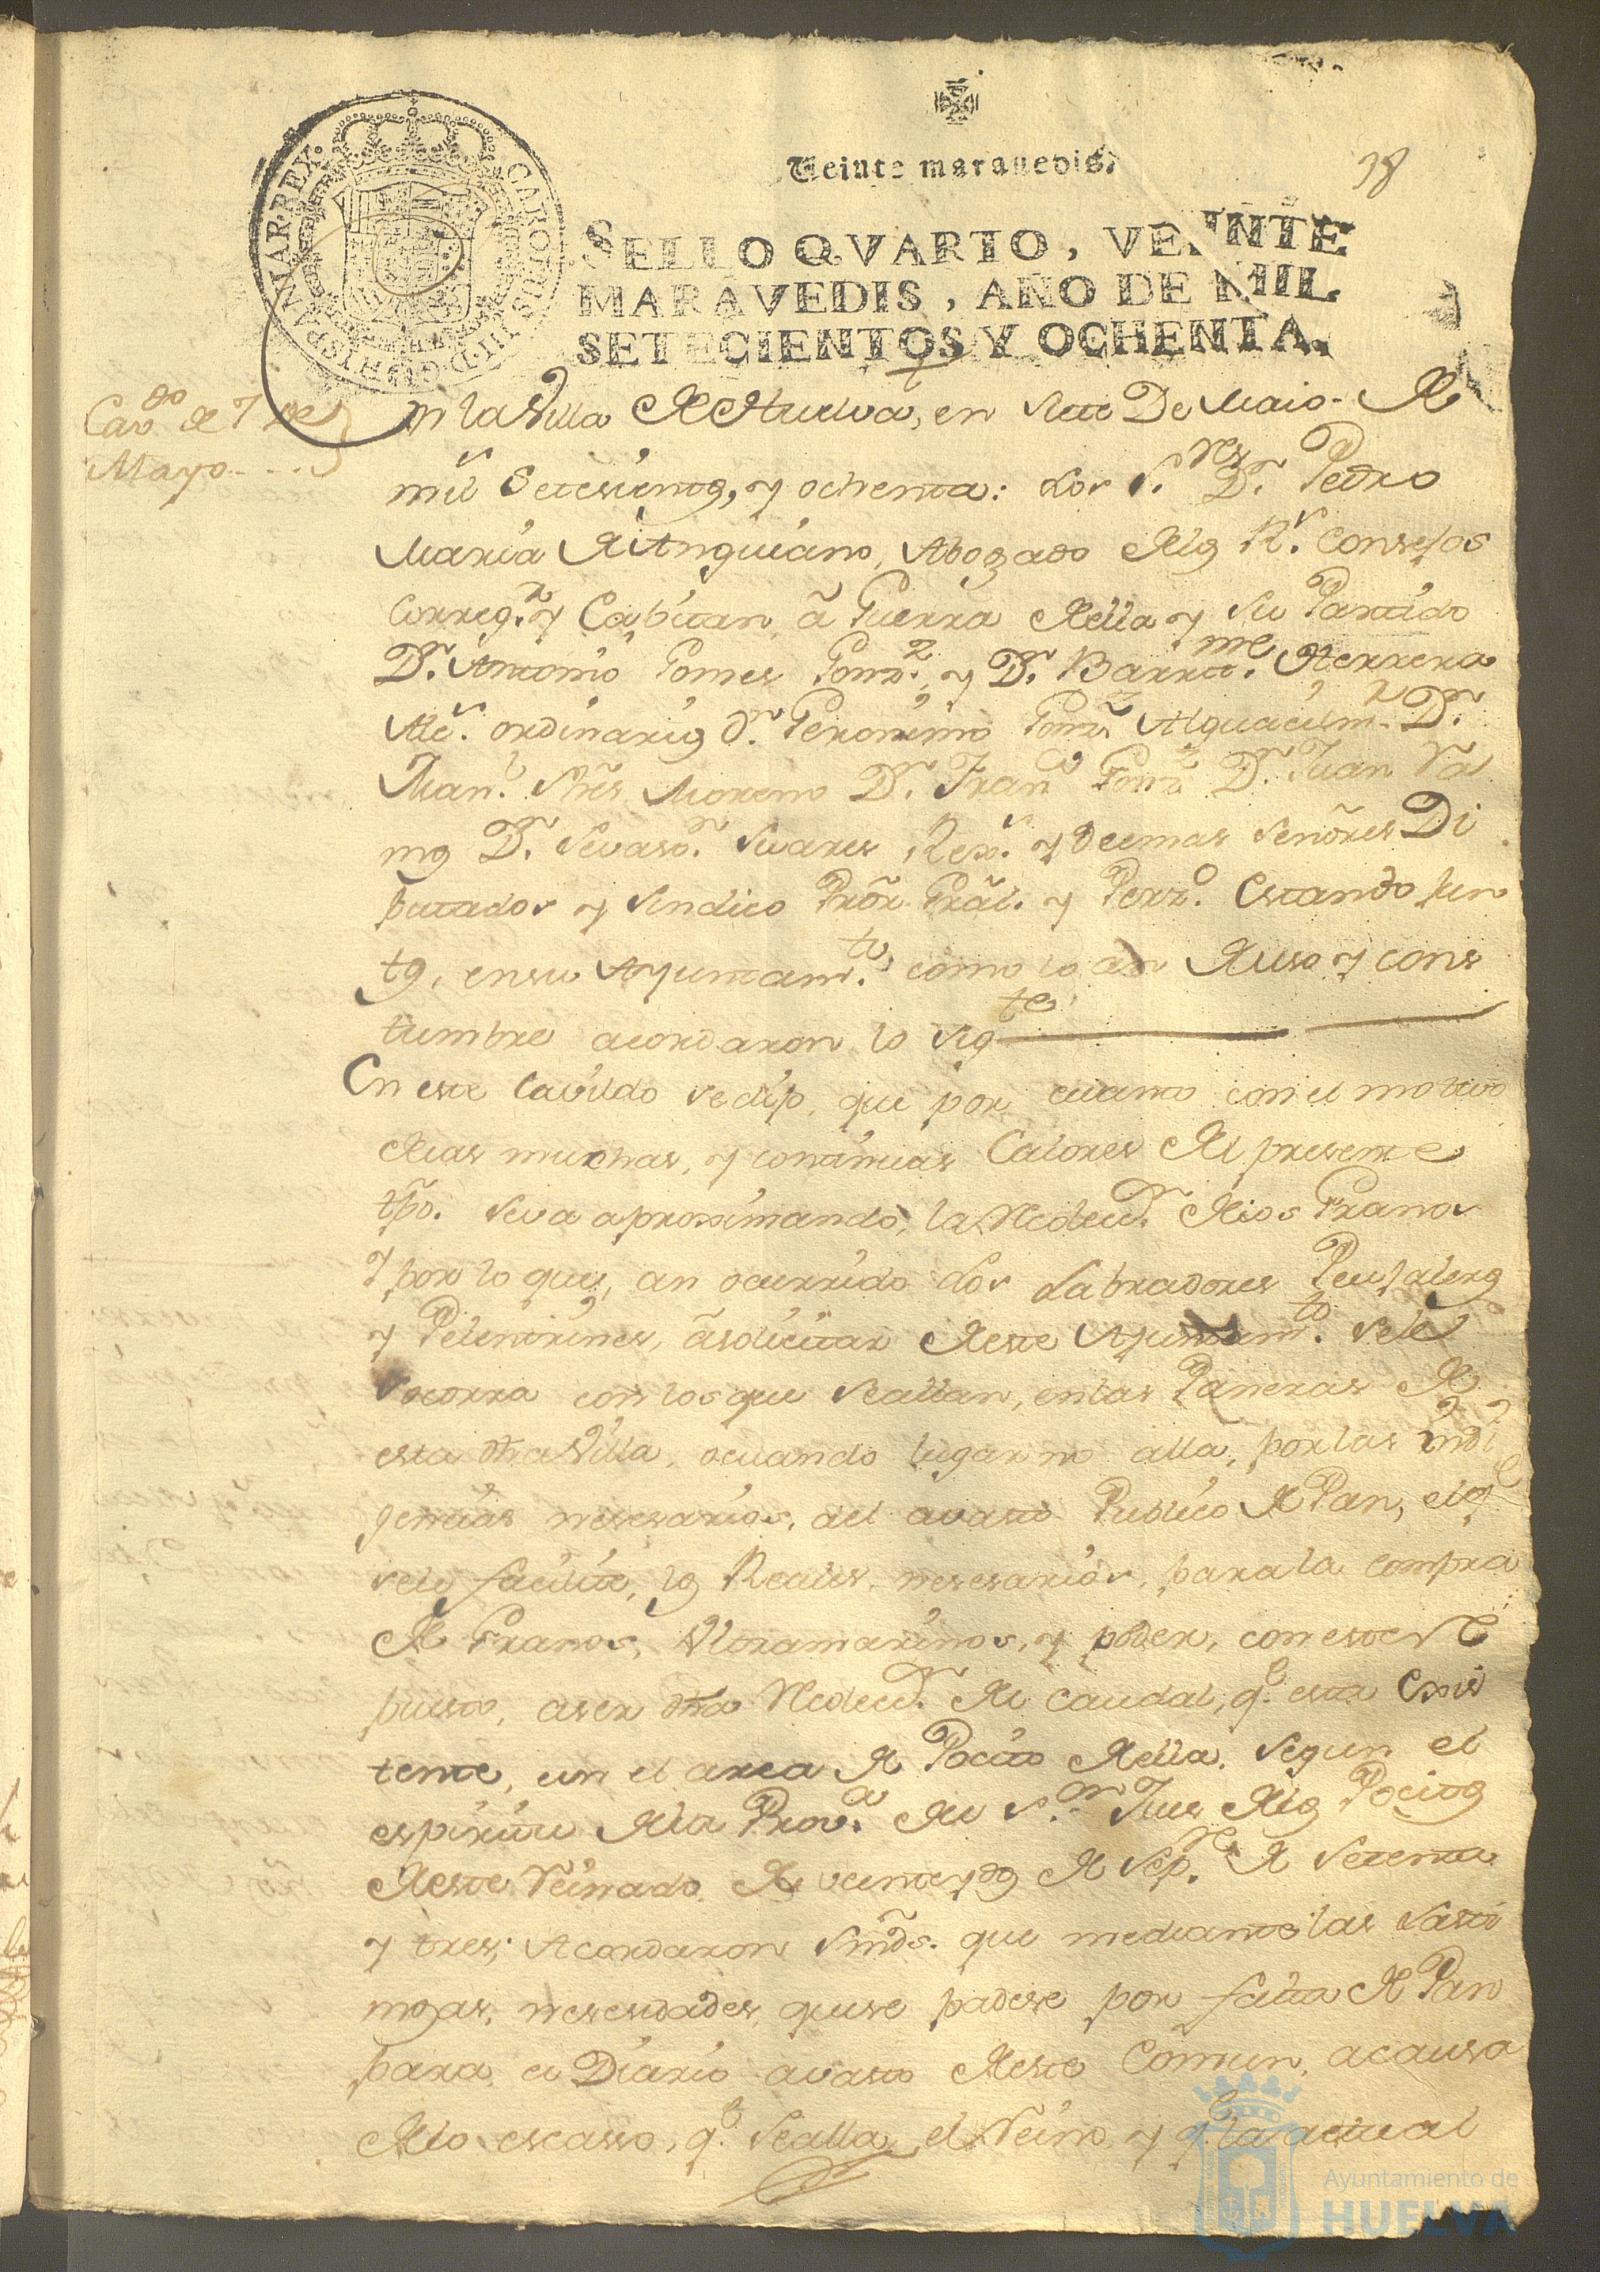 Veinte maravedis.
18
SELLO QVARTO, VEINTE
MARAVEDIS, AÑO DE MIL
SETECIENTOS Y OCHENTA.
CAROLUS III D G HISPANIAR REX
Cavdo de 7 de
Mayo
En la Villa de Huelva, en siete De Maio de
mil Setesientos, y ochenta: Los S.res D.n Pedro
Maria de Anguiano, Abogado de los R.s Consejos
Correg.r y Capitan â Guerra de ella y su Partido
D.n Antonio Gomes Gonz.z y D.n Barme. Herrera
Alc.s ordinarios D.n Geronimo Gonz.z Alguacil m.r D.n
Man.l Moreno D.n Fran.co Gonz.z D.n Juan
D.n Sevasn. Suares, Rex.s y demas señores Di
putados y Sindico Prõr Grãl. y Perzo. Estando jun
tos, en su Ayuntam.to como lo an de uso y cons
tumbre acordaron lo sigte
En este Cavildo se dijo, que por cuanto con el motivo
de las muchas, y continuas Calores del presente
tpõ. se va aprosimando, la Recolecn. de los Granos
y por lo que, an ocurrido Los Labradores Peujaleros
y Pelentrines, â solicitar de este Ayuntam.to se le
socorra con los que se allan, en las Paneras de
esta dha Villa, o cuando lugar no alla, por las indi
gencias nesesarios, del avasto Publico de Pan, el q.e
se le facilite, los Reales, nesesarios, para la compra
de Granos, Ultramarinos, y poder, con este
puesto, aser dha Recolecn. del caudal, q.e esta Exis
tente, en el arca de Pocito de ella. Segun el
espiritu de la Prov.a del S.or Jues de los Pocitos
de este Reinado de veinte y dos de Sep.re de Setenta
y tres; Acordaron Smds. que mediante las Lasti
mosas, nesesidades, que se padese por falta de Pan
para el Diario avasto de este Comun, a causa
de lo escasso, q.e se alla, el Reino, y q.e la actual
Ayuntamiento de
HUELVA